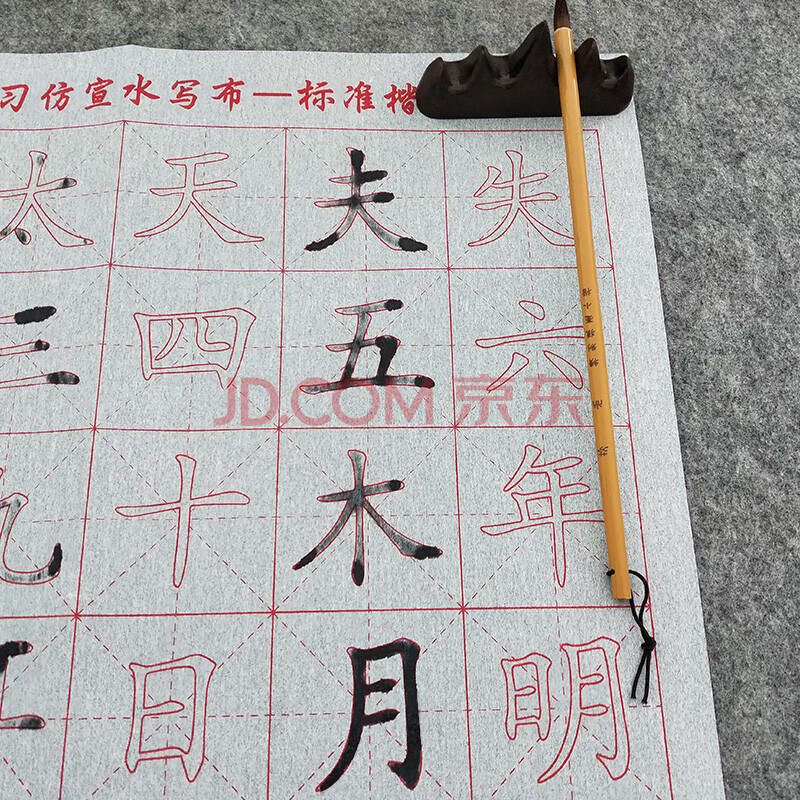 习仿宣水写布—标准楷
太 天 夫 失
三 四 五 六
JD.COM 京东
九 十 木 年
日 月 明